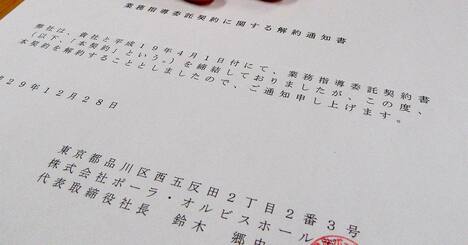 業務指導委託契約に関する解約通知書
弊社は、貴社と平成19年4月1日付にて、業務指導委託契約書
(以下、「本契約」という。)を締結しておりましたが、この度、
本契約を解約することとしましたので、ご通知申し上げます。
29年12月28日
東京都品川区西五反田2丁目2番3号
株式会社ポーラ・オルビスホール
代表取締役社長 鈴木 郷